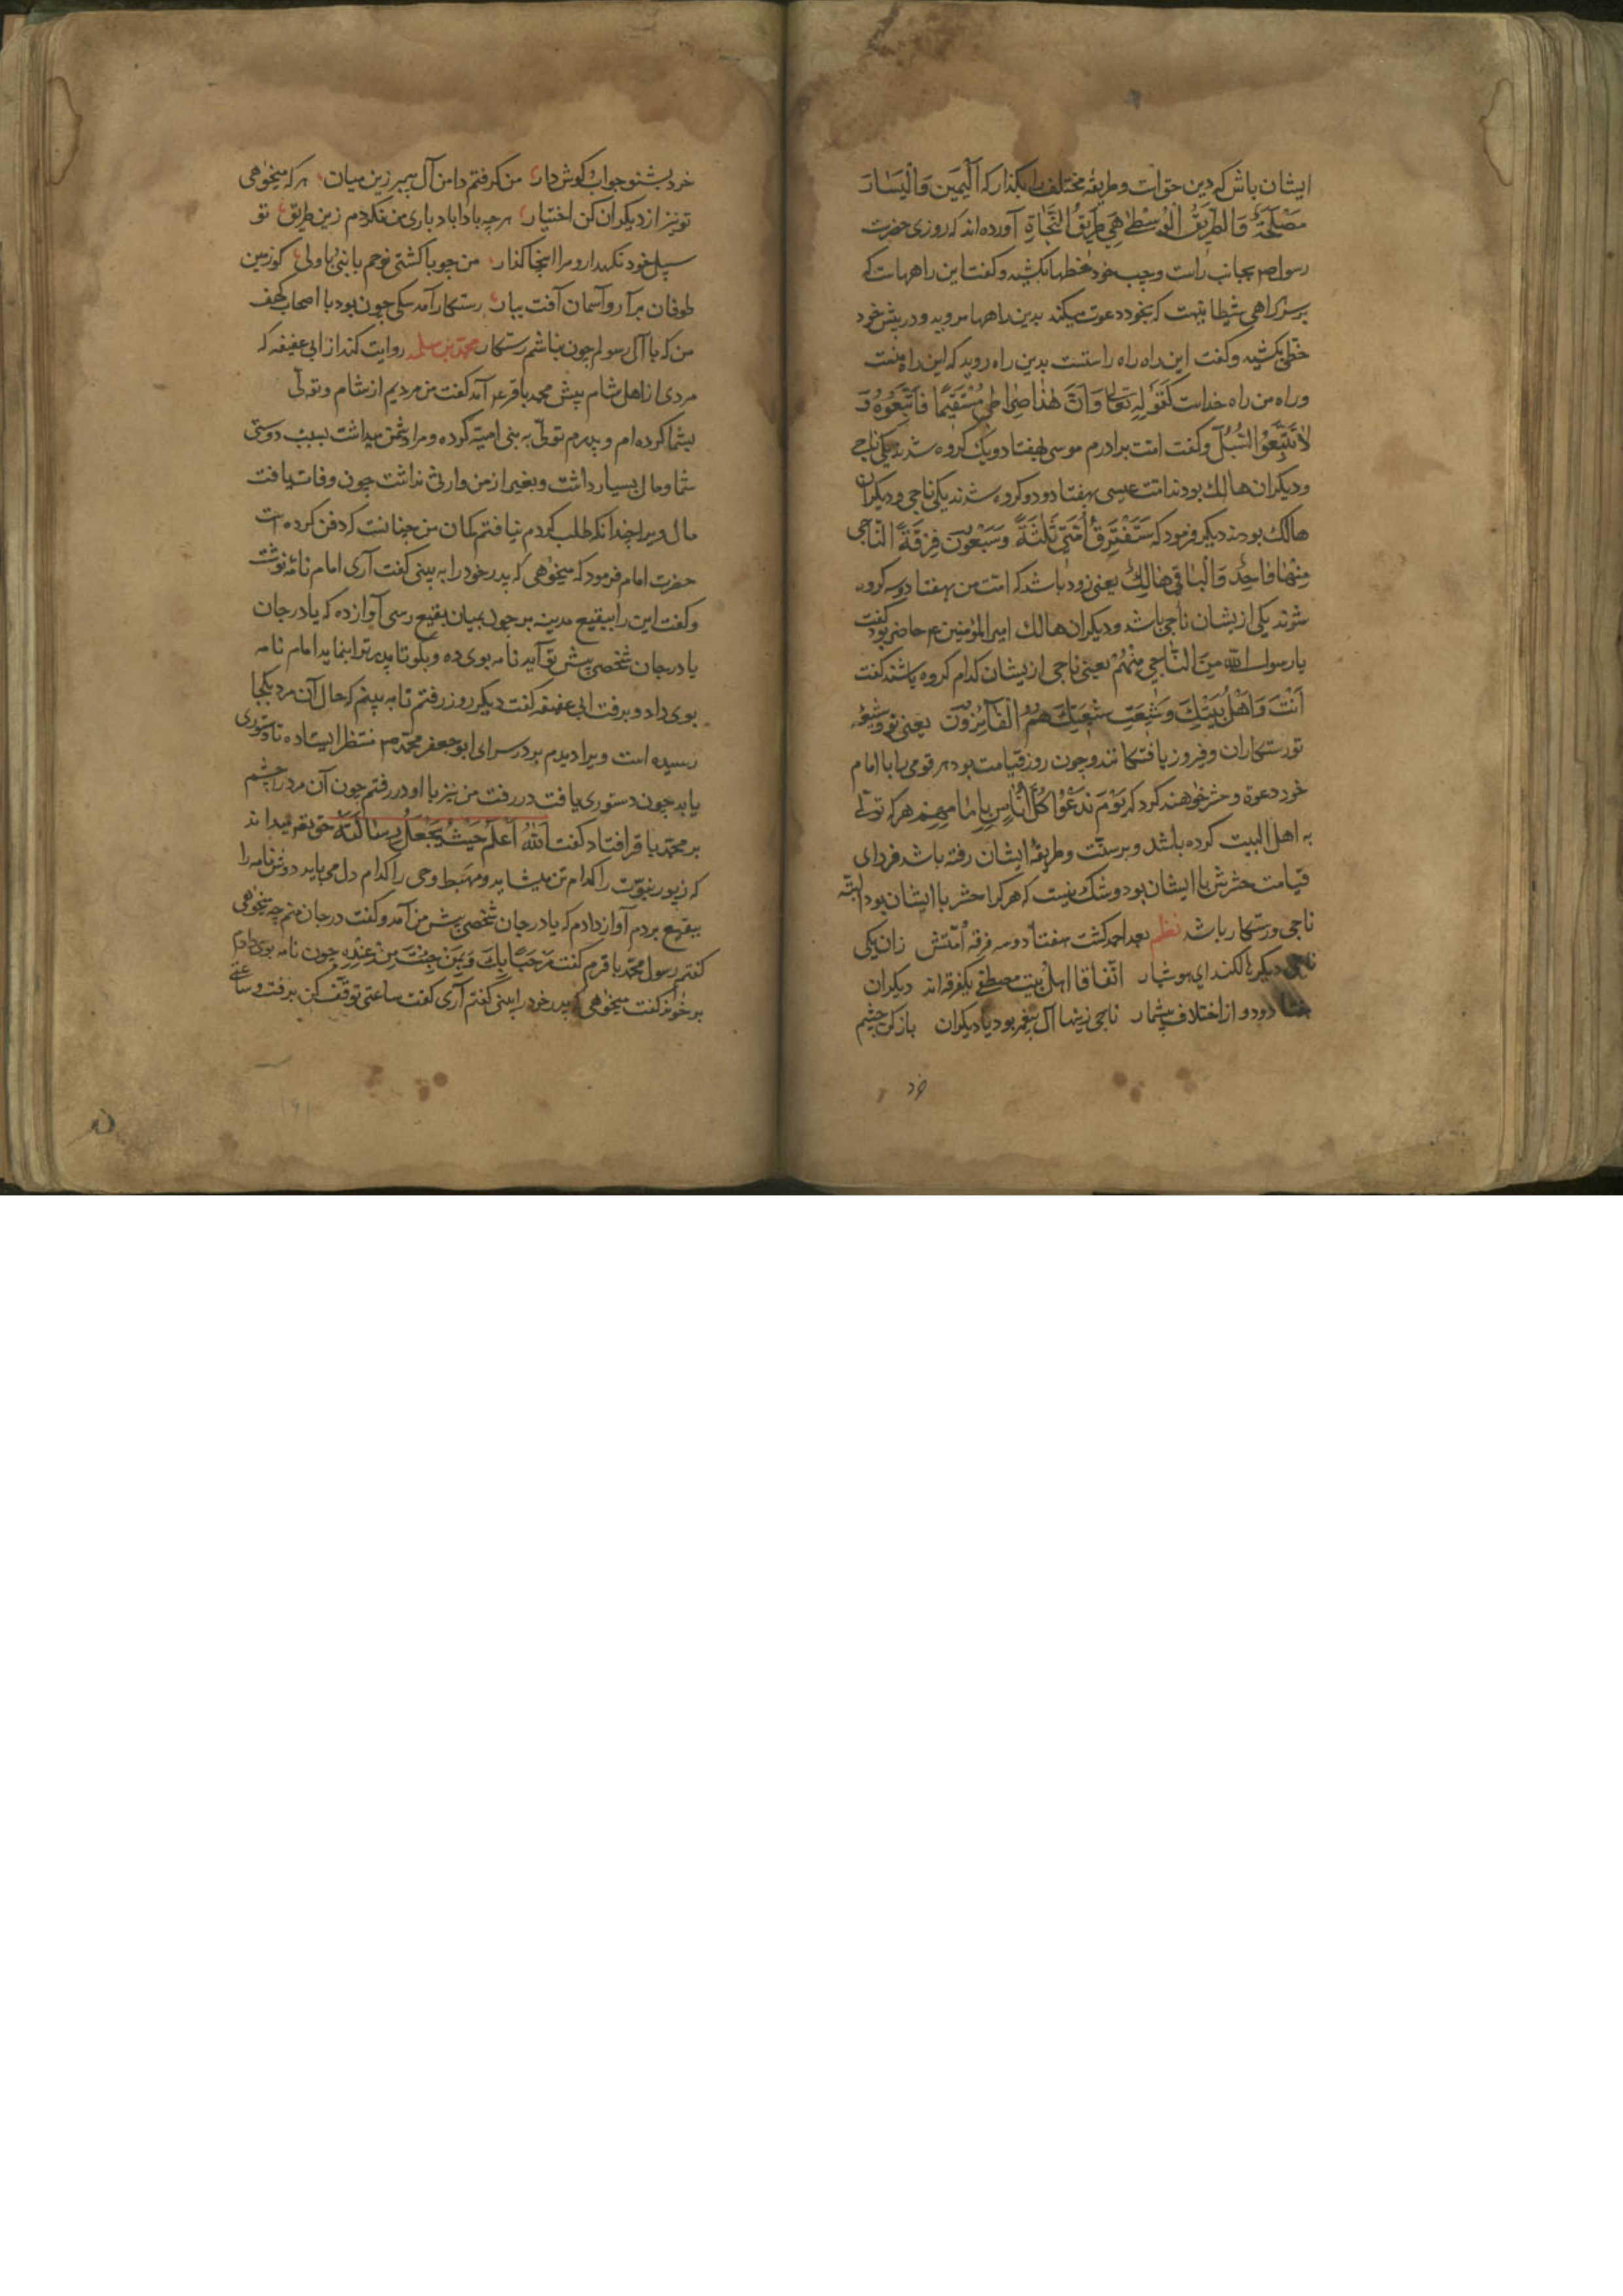 ایشان باش که دین حق است و طریقهٔ مختلف را بگذار که اَلْیَمین وَالْیَسارَ
مَضَلَّةٌ وَالطَّرِیقُ الْوُسْطےٰ هِیَ طَرِیقُ النَّجٰاةِ آورده‌اند که روزی حضرت
رسول صم بجانب راست و چپ خود خطها بکشید و گفت این راههاست که
بر سر هر راهی شیطانیست که بخود دعوت میکند بدین راهها مروید و در پیش خود
خطی بکشید و گفت این راه راه راستست بدین راه روید که این راه منست
و راه من راه خداست کَقَوْلِهِ تَعٰالیٰ وَاَنَّ هٰذا صِرٰاطی مُسْتَقیمًا فَاتَّبِعُوهُ وَ
لٰا تَتَّبِعُوا السُّبُلَ و گفت امت برادرم موسی بهفتاد و یک گروه شدند یکی ناجی
و دیگران هالک بودند امت عیسی بهفتاد و دو گروه شدند یکی ناجی و دیگران
هالک بودند دیگر فرمود که سَتَفْتَرِقُ اُمَّتِی ثَلٰثَةً وَسَبْعُونَ فِرْقَةً النّاجی
مِنْهٰا وٰاحِدٌ وَالْبٰاقی هٰالِکٌ یعنی زود باشد که امت من بهفتاد و سه گروه
شوند یکی ازیشان ناجی باشد و دیگران هالک امیر المؤمنین ع م حاضر بود گفت
یا رسول الله مَنِ النّٰاجی مِنْهُمْ یعنی ناجی ازیشان کدام گروه باشند گفت
اَنْتَ وَاَهْلُ بَیْتِکَ وَشیعَتِ شیعَتِکَ هُمُ الْفٰآئِزُونَ یعنی تو و شیعهٔ
تو رستکاران و فیروز یافتکانند و چون روز قیامت بود هر قومی را با امام
خود دعوة و حشر خواهند کرد که یَوْمَ نَدْعُوا کُلَّ اُنٰاسٍ بِاِمٰامِهِمْ هر که تولّی
به اهل البیت کرده باشد و بر سنّت و طریقهٔ ایشان رفته باشد فردای
قیامت حشرش با ایشان بود و شک نیست که هر کرا حشر با ایشان بود البتّه
ناجی و رستکار باشد نظم بعد احمد گشت هفتاد و سه فرقه اُمّتش زان یکی
ناجی دیگر هالکند ای هوشیار اتّفاقا اهل بیت مصطفی یکفرقه‌اند دیگران
هفتاد و دو از اختلاف بیشمار ناجی زینها آل پیغمبر بود یا دیگران باز کن چشم
خرد
خرد بشنو جواب و گوش دار من گرفتم دامن آل پیمبر زین میان هر که میخواهی
تو نیز از دیگران کن اختیار هر چه بادا باد باری من نگردم زین طریق تو
سبیل خود نگهدار و مرا اینجا گذار من چو با کشتی نوحم با نبی و با ولی گو زمین
طوفان برآر و آسمان آفت ببار رستکار آمد سگی چون بود با اصحاب کهف
من که با آل رسولم چون نباشم رستکار محمّد بن مسلم روایت کند از ابی عفیفه که
مردی از اهل شام پیش محمد باقر ع آمد گفت من مردیم از شام و تولّی
بشما کرده‌ام و پدرم تولّی به بنی امیّه کرده و مرا دشمن میداشت بسبب دوستی
شما و مال بسیار داشت و بغیر از من وارثی نداشت چون وفات یافت
مال ویرا چندانکه طلب کردم نیافتم گمان من چنانست که دفن کرده است
حضرت امام فرمود که میخواهی که پدر خود را به بینی گفت آری امام نامهٔ نوشت
و گفت این را ببقیع مدینه بر چون بمیان بقیع رسی آواز ده که یا درجان
یا درجان شخصی پیش تو آید نامه بوی ده و بگو تا پدر ترا بنماید امام نامه
بوی داد و برفت ابی عفیفه گفت دیگر روز رفتم تا به بینم که حال آن مرد بکجا
رسیده است ویرا دیدم بر در سرای ابو جعفر محمّد منتظر ایستاده تا دستوری
یابد چون دستوری یافت در رفت من نیز با او در رفتم چون آن مرد را چشم
بر محمّد باقر افتاد گفت اَللهُ اَعْلَمُ حَیْثُ یَجْعَلُ رِسٰالَتَهُ حق بهتر میداند
که زیور نبوّت را کدام تن میشاید و مهبط وحی را کدام دل می‌باید دوش نامه را
ببقیع بردم آواز دادم که یا درجان شخصی پیش من آمد و گفت درجان منم چه میخواهی
گفتم رسول محمّد باقرم گفت مَرْحَبًا بِکَ وَبِمَنْ جِئْتَ مِنْ عِنْدِهِ چون نامه بوی دادم
برخواند گفت میخواهی که پدر خود را ببینی گفتم آری گفت ساعتی توقّف کن برفت و ساعتی
۱۶۱